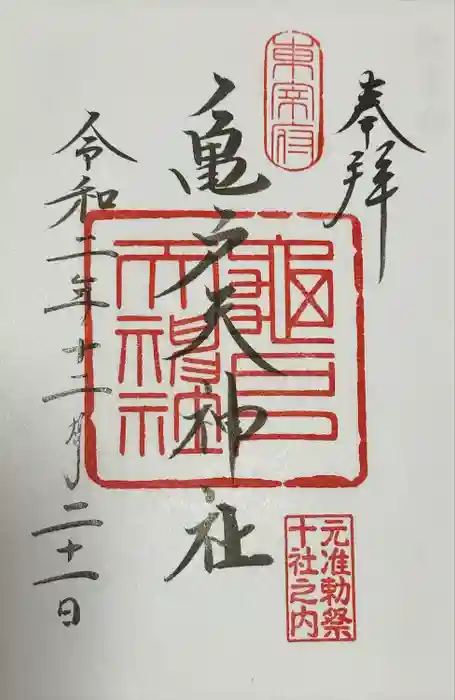 奉拝
東宰府
亀戸天神社
元准勅祭
十社之内
令和二年十二月二十一日